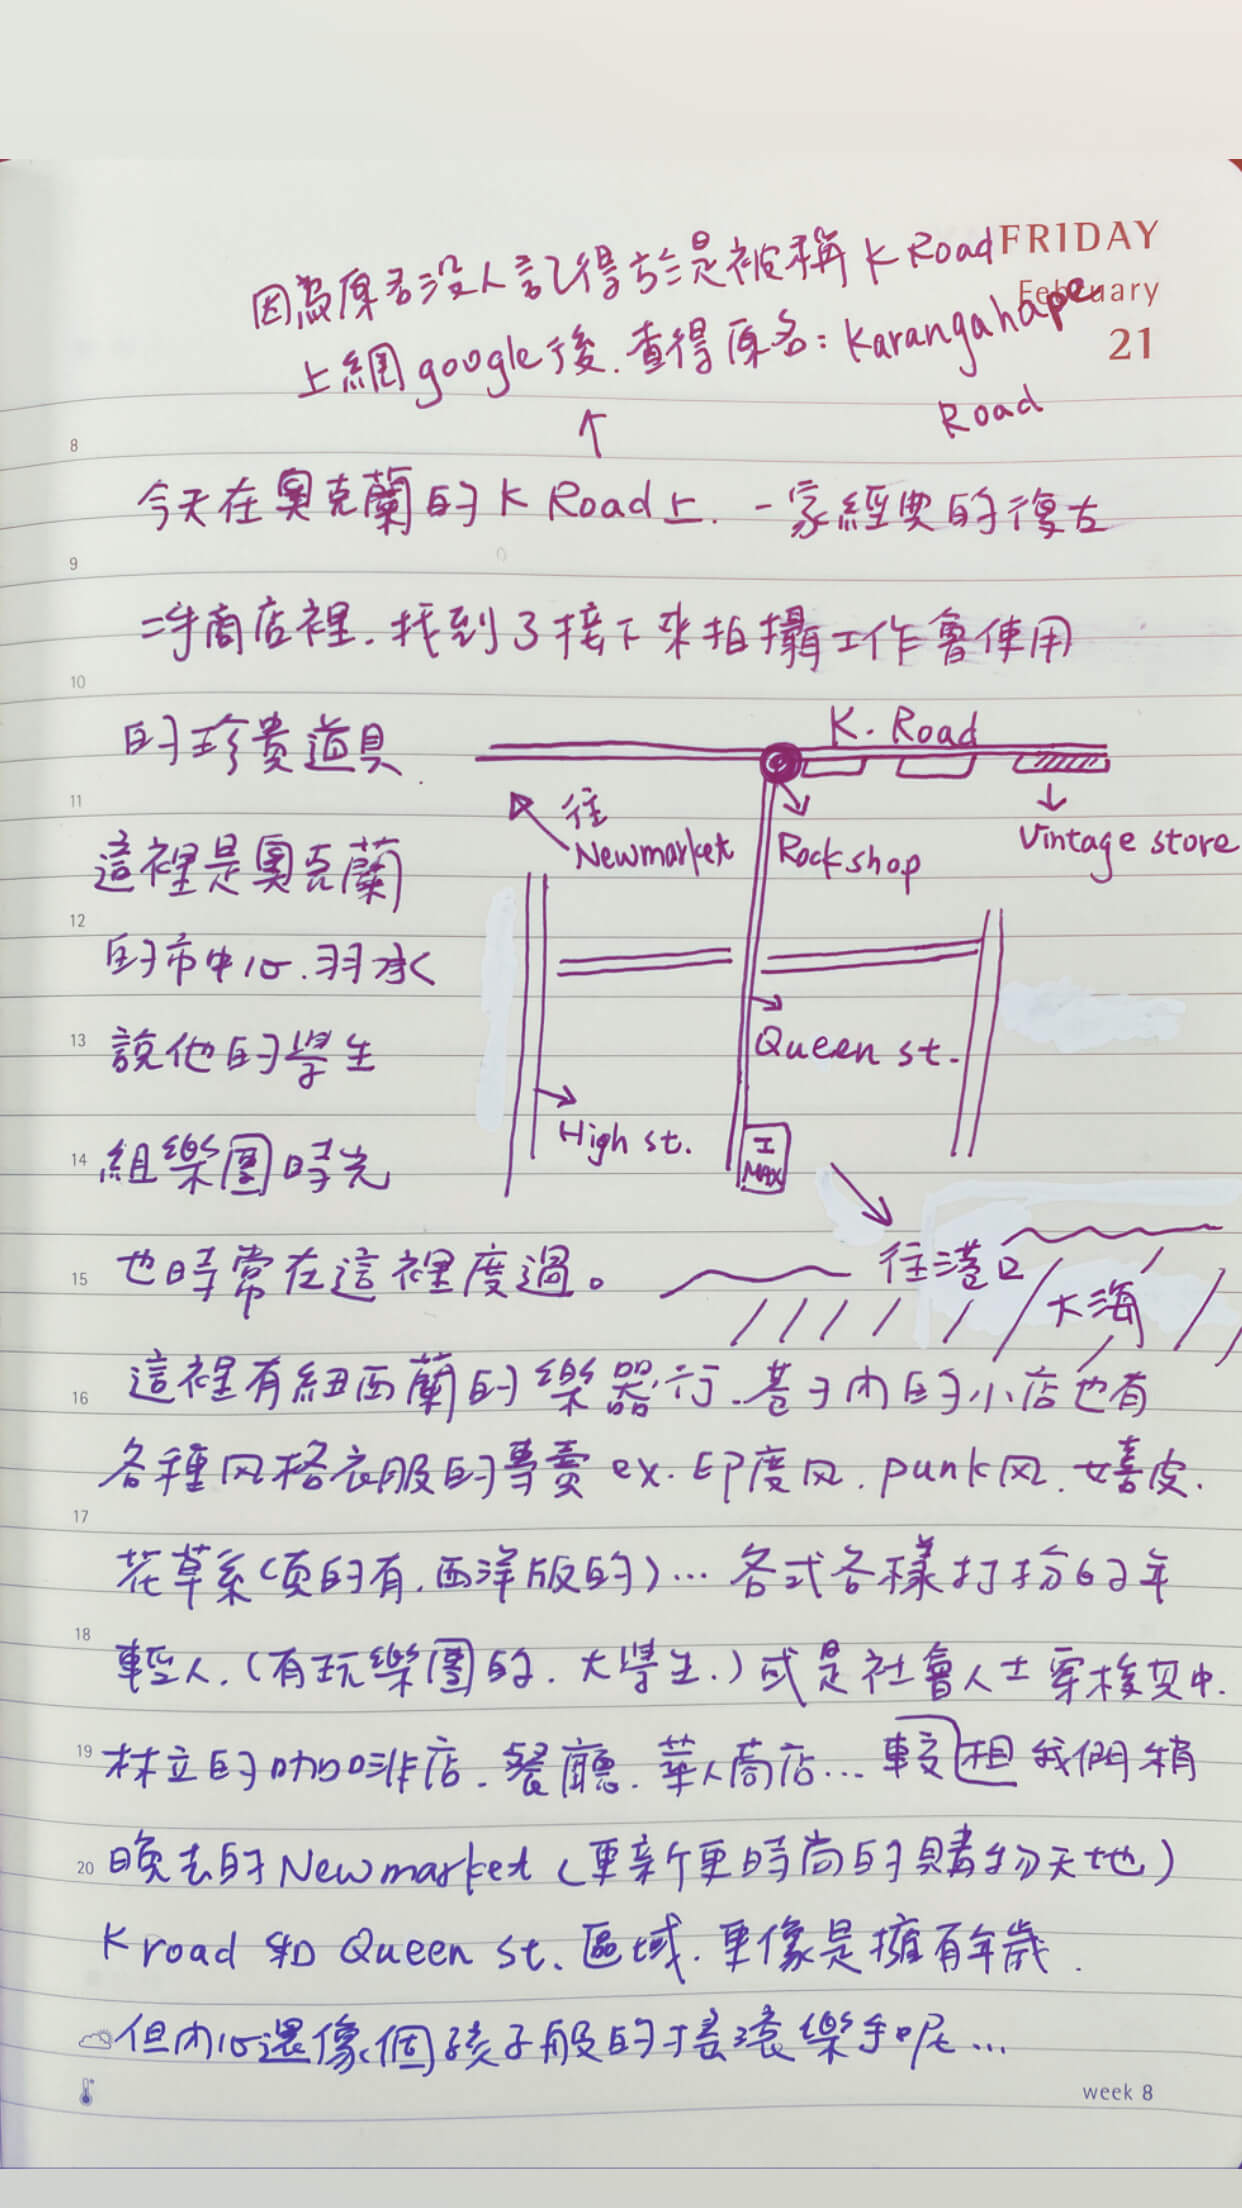 FRIDAY
February
21
因為原名沒人記得於是被稱 K Road
上網google後.查得原名：Karangahape
Road
↑
8
今天在奧克蘭的 K Road上.一家經典的復古
9
二手商店裡.找到了接下來拍攝工作會使用
10
的珍貴道具.
K. Road
往
Newmarket
Rockshop
Vintage store
11
這裡是奧克蘭
12
的市中心.羽承
13
說他的學生
Queen st.
High st.
14
組樂團時光
I
MAX
往港口
大海
15
也時常在這裡度過。
16
這裡有紐西蘭的樂器行.巷子內的小店也有
各種风格衣服的專賣 ex.印度风.punk风.嬉皮.
17
花草系(真的有.西洋版的)...各式各樣打扮的年
18
輕人.(有玩樂團的.大學生.)或是社會人士穿梭其中.
19
林立的咖啡店.餐廳.華人商店...較相我們稍
20
晚去的Newmarket(更新更時尚的購物天地)
K road 和 Queen st.區域.更像是擁有年歲.
但內心還像個孩子般的搖滾樂手呢...
week 8